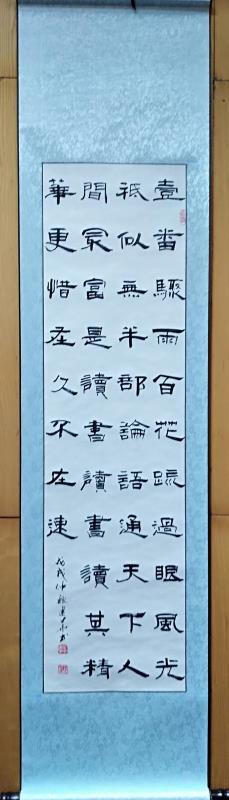 壹番驟雨百花疏過眼風光
祇似無半部論語通天下人
間冣富是讀書讀書讀其精
華更惜在久不在速
戊戌仲秋